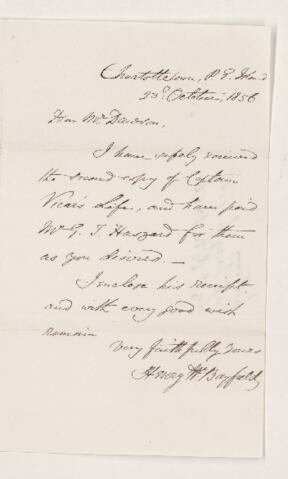 Charlottetown, P. E. Island
23d October, 1856
Dear Mr Dawson,
I have safely received
the second copy of Captain
Vicars Life, and have paid
Mr G. T. Haszard for them
as you desired. —
I enclose his receipt
and with every good wish
remain
Very faithfully yours
Henry W. Bayfield